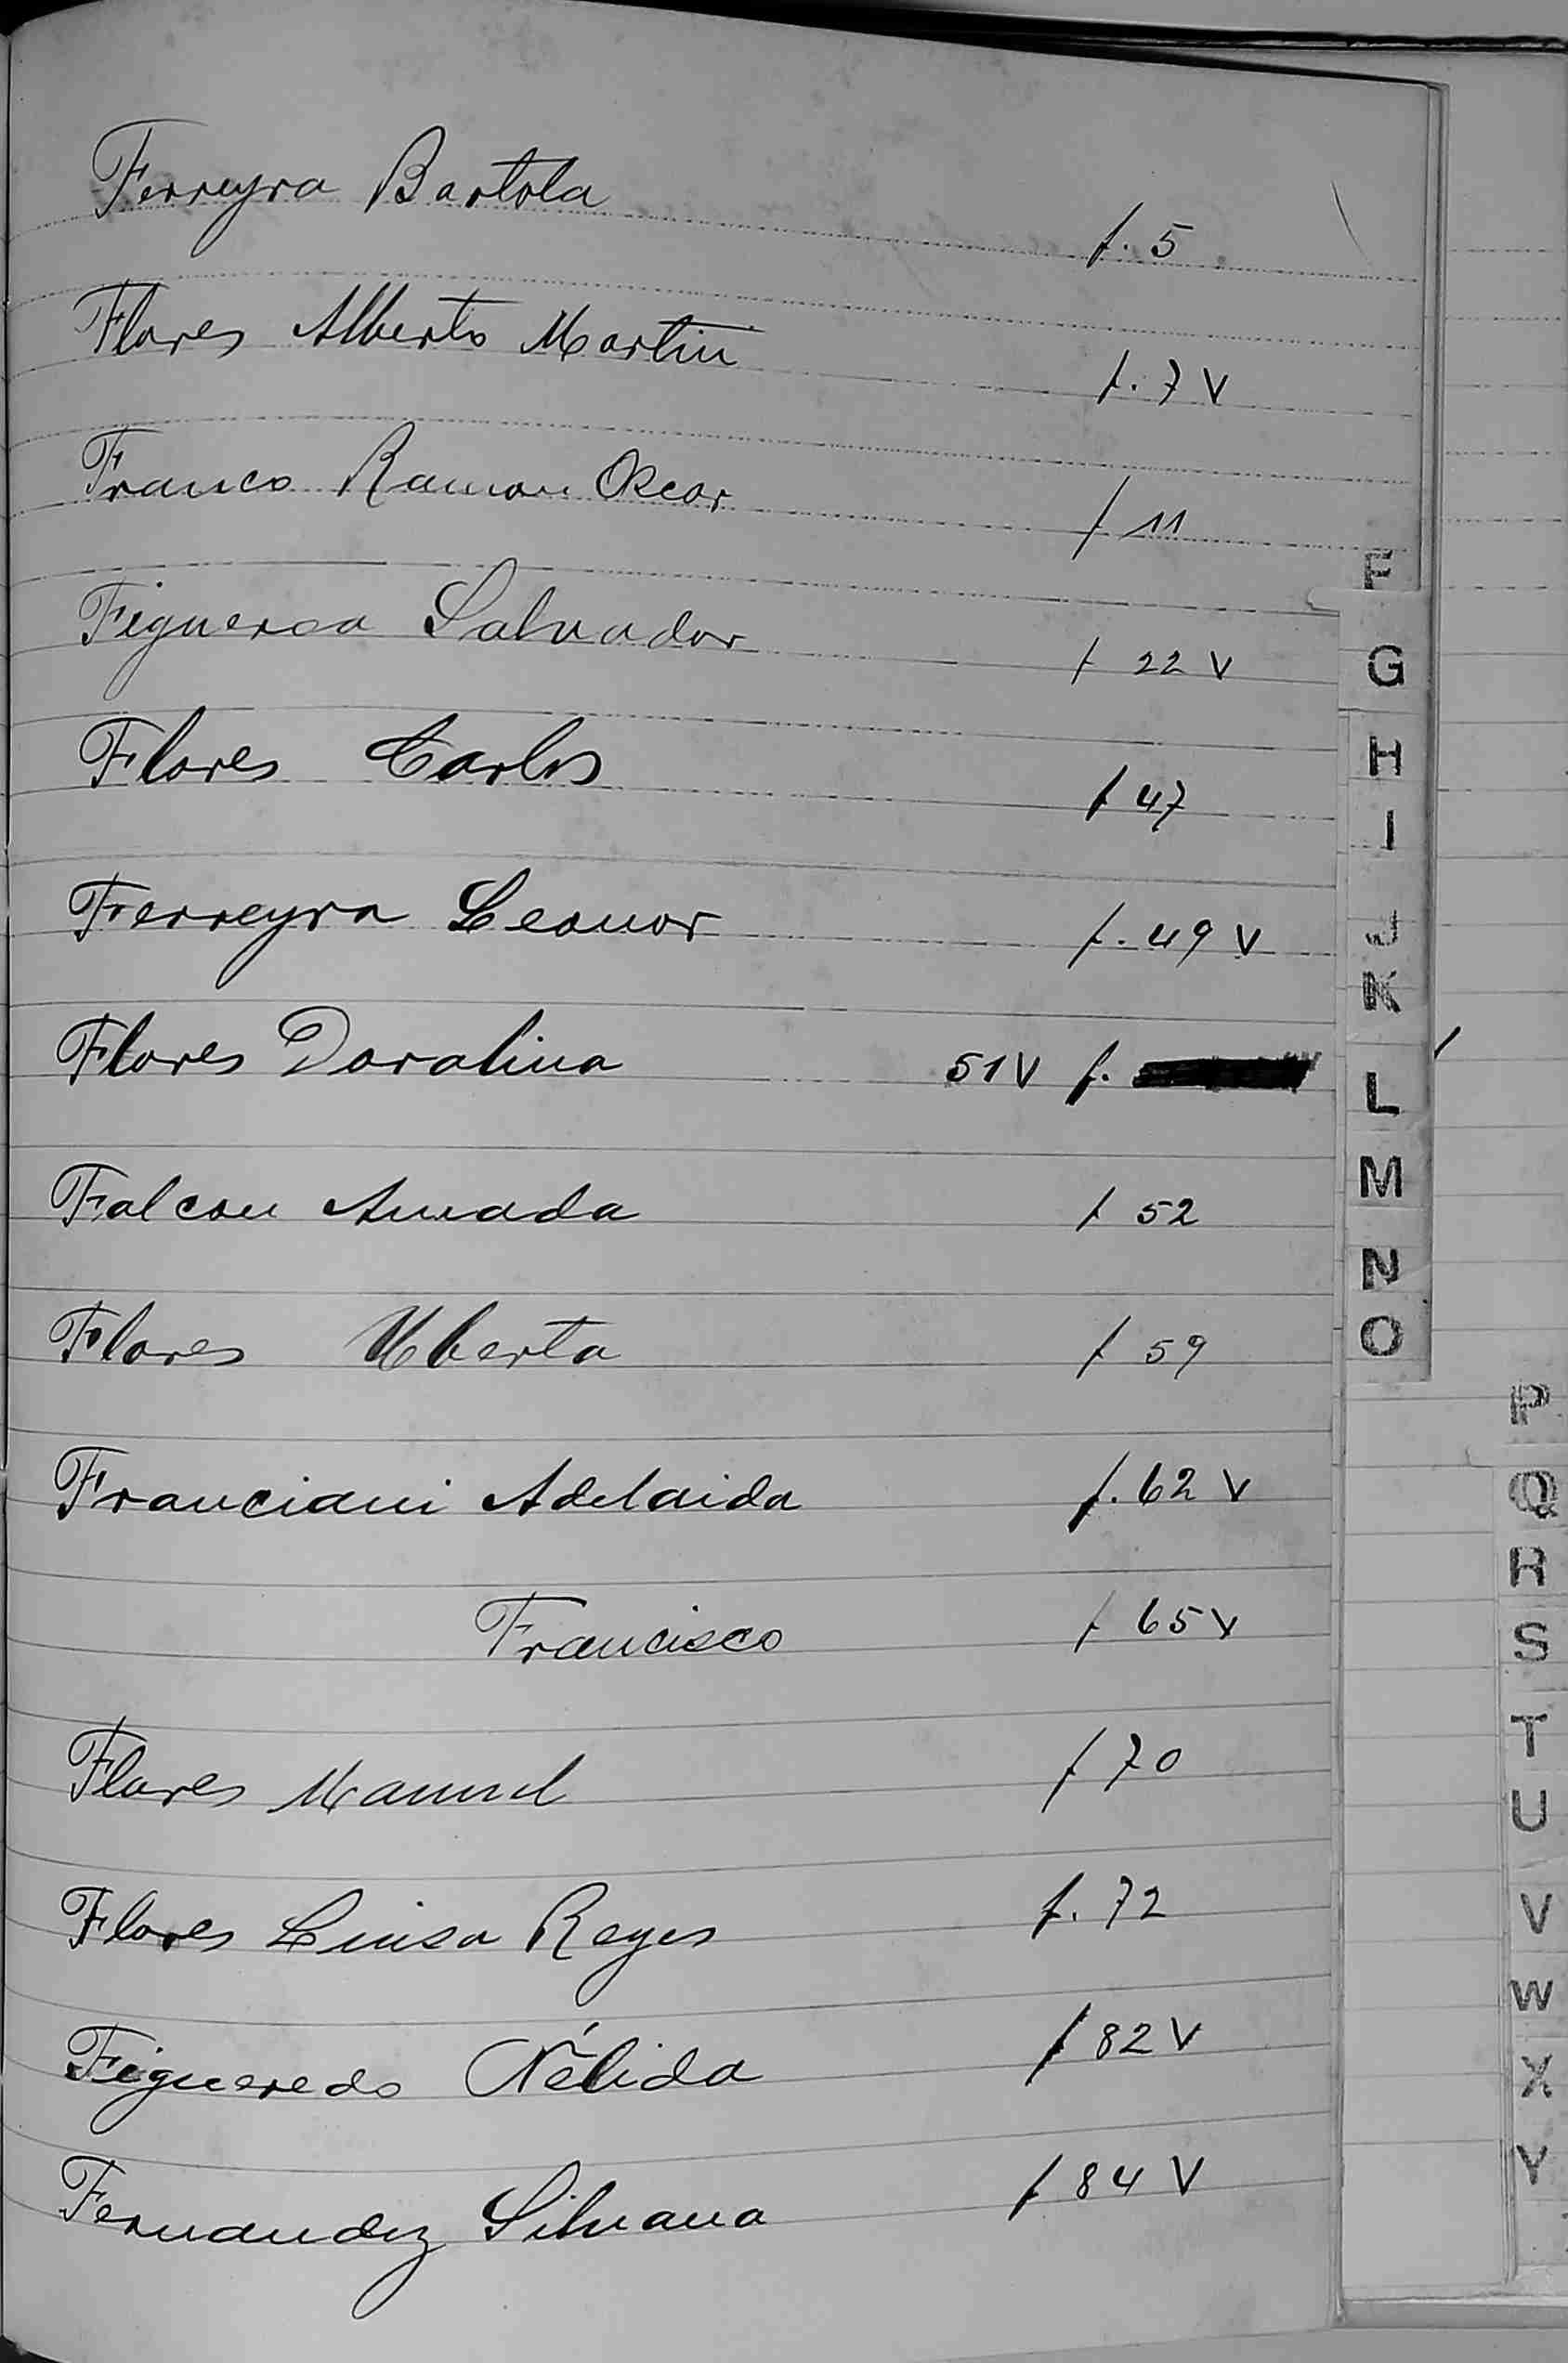 Ferreyra Bartola f. 5
Flores Alberto Martin f. 7 V
Franco Ramon Oscar f 11
Figueroa Salvador f 22 V
Flores Carlos f 47
Ferreyra Leonor f. 49 V
Flores Doralina 51V f.
Falcon Amada f 52
Flores Uberta f 59
Franciani Adelaida f. 62 V
Francisco f 65 V
Flores Manuel f 70
Flores Luisa Reyes f. 72
Figueredo Nélida f 82 V
Fernandez Silvana f 84 V
F
G
H
I
J
K
L
M
N
O
P
Q
R
S
T
U
V
W
X
Y